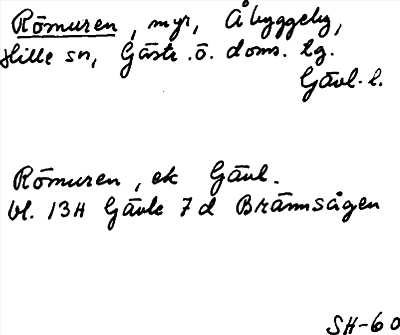 Römuren, myr, Åbyggeby,
Hille sn, Gästr. ö. doms. lg.
Gävl. l.
Römuren, ek Gävl.
bl. 13H Gävle 7d Brännsågen
SH-60